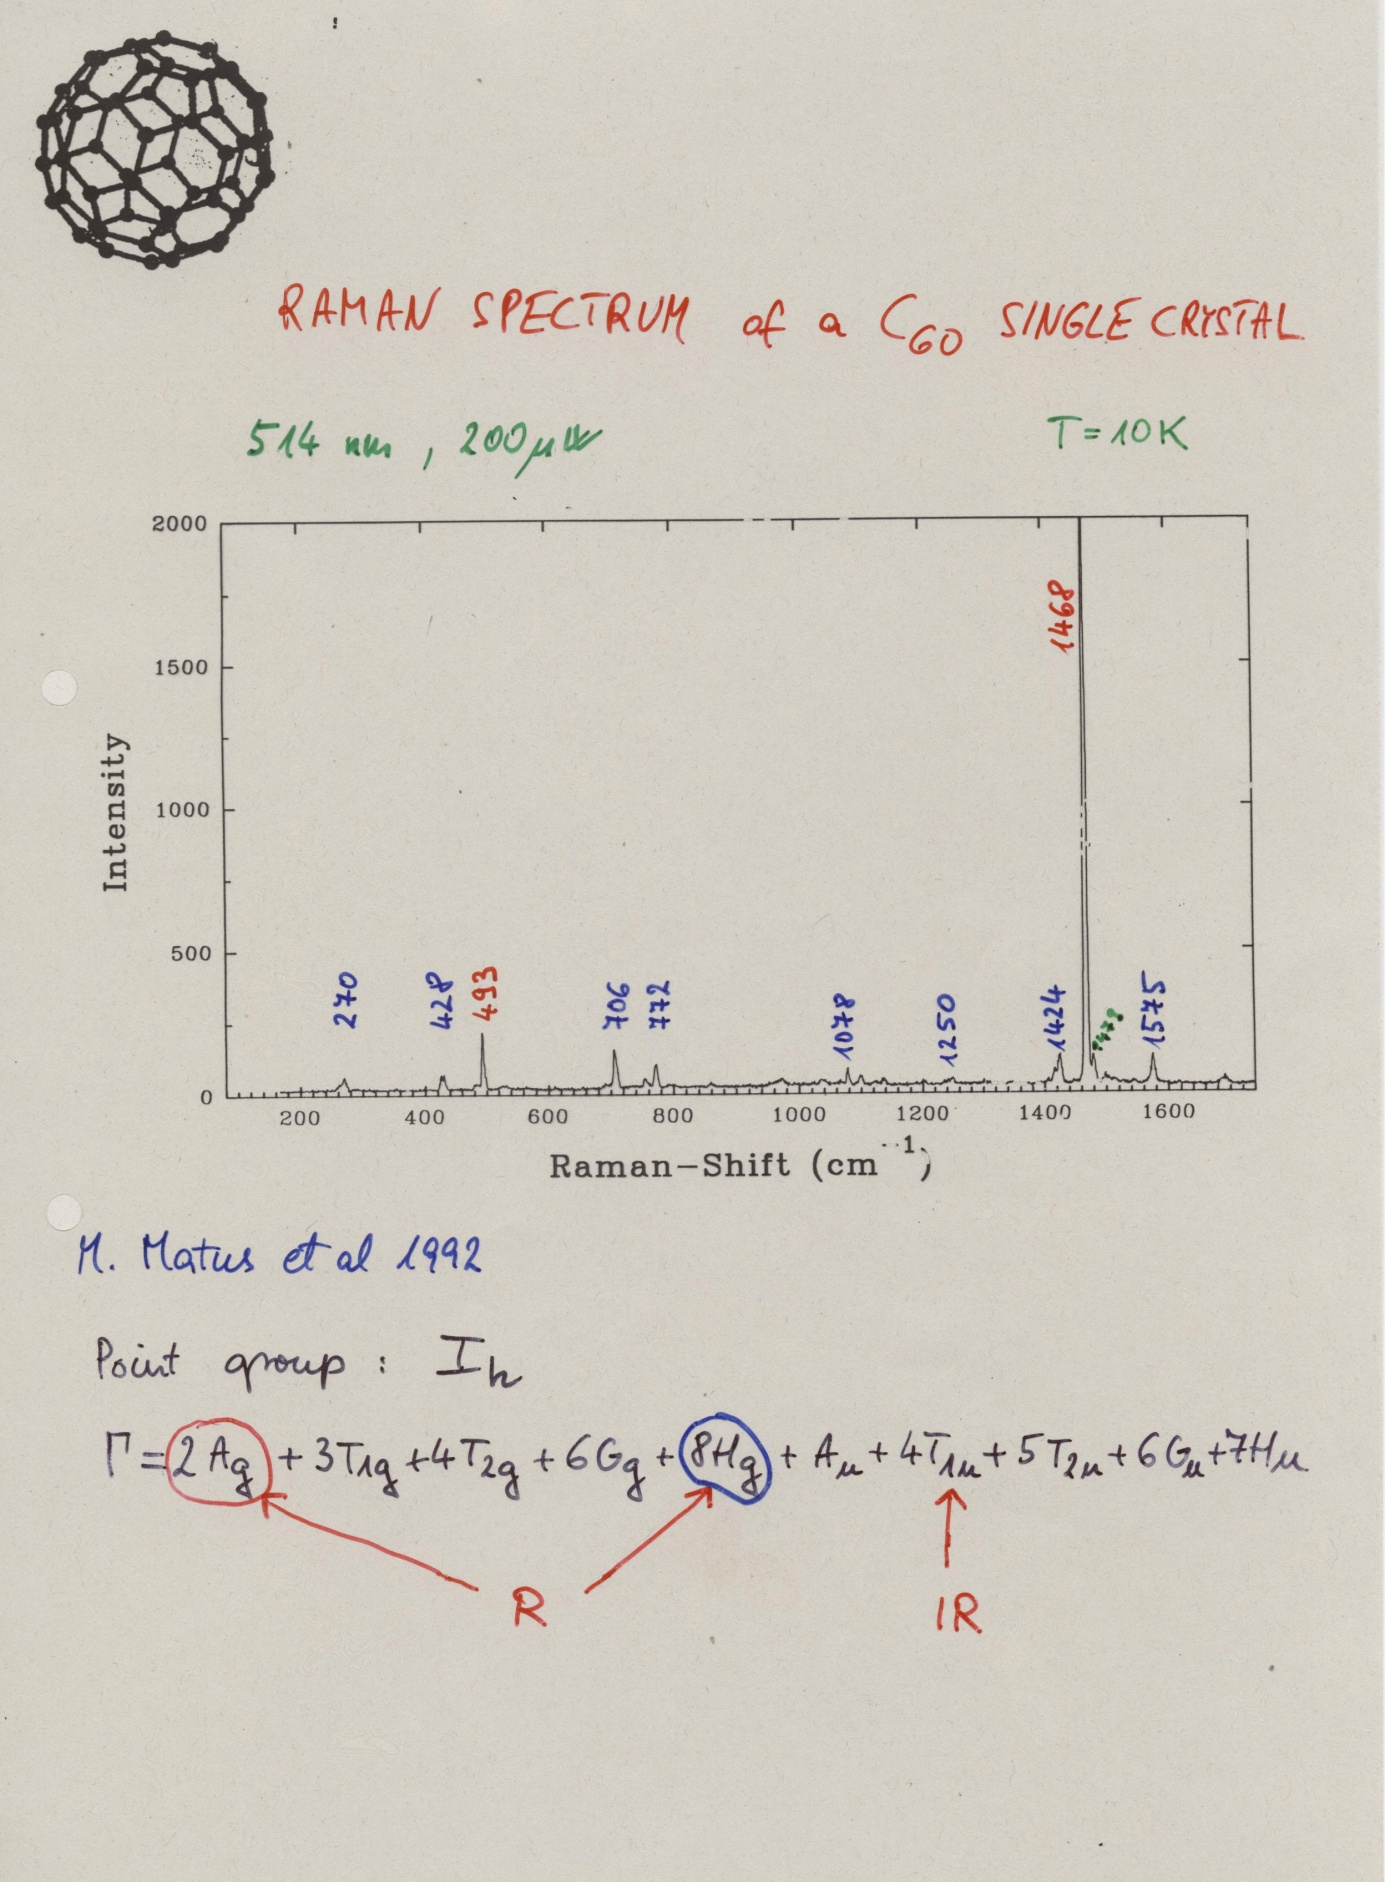 RAMAN SPECTRUM of a C60 SINGLE CRYSTAL
514 nm , 200µW
T = 10K
2000
1500
1000
500
0
Intensity
1468
270
428
493
706
772
1078
1250
1424
1575
200 400 600 800 1000 1200 1400 1600
Raman-Shift (cm -1)
M. Matus et al 1992
Point group : Ih
Γ = 2Ag + 3T1g + 4T2g + 6Gg + 8Hg + Au + 4T1u + 5T2u + 6Gu + 7Hu
R
IR